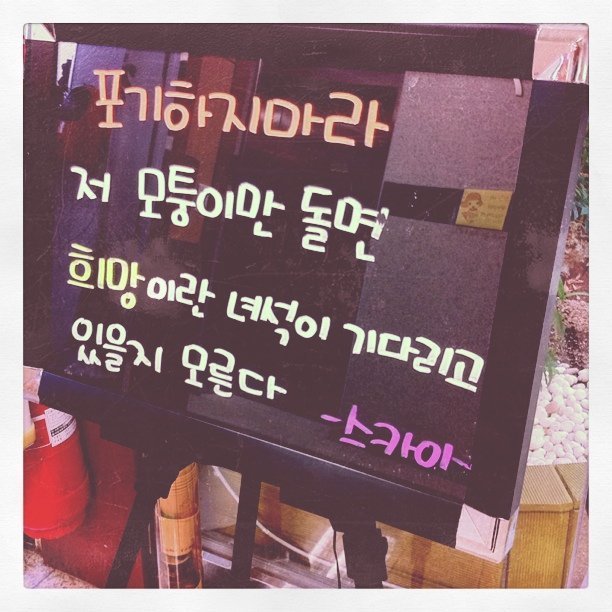 포기하지마라
저 모퉁이만 돌면
희망이란 녀석이 기다리고
있을지 모른다
-스카이-